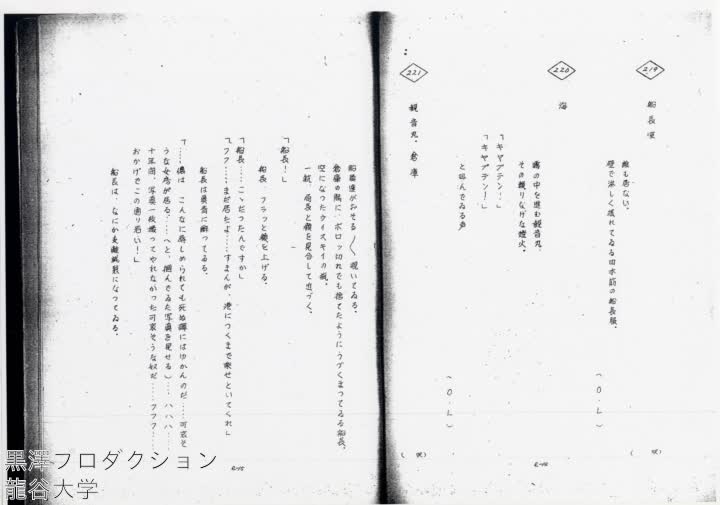 219
船長室
誰も居ない。
壁で淋しく揺れてゐる
船長帽。
( O.L )
220
海
霧の中を進む観音丸。
その頼りなげな燈火。
「キャプテン！」
「キャプテン！」
と呼んでゐる声
( O.L )
221
観音丸・倉庫
船員達がおそる〳〵覗いてゐる。
倉庫の隅に、ボロッ切れでも捨てたようにうづくまってゐる船長。
空になったウイスキイの瓶。
一航、局長と顔を見合して近づく。
「船長！」
船長 フラッと顔を上げる。
「船長……こゝだったんですか」
「フフ……まだ居たよ……すまんが、港につくまで乗せといてくれ」
船長は異常に酔ってゐる。
「……俺は、こんなに虐しめられても死ぬ譯にはゆかんのだ……可哀そ
うな女房が居る……へと、掴んでゐた写真を見せる)……ハハハ……
十年間、写真一枚撮ってやれなかった可哀そうな奴だ……フフフ……
おかげでこの通り若い！」
船長は、なにか支離滅裂になってゐる。
黒澤プロダクション
龍谷大学